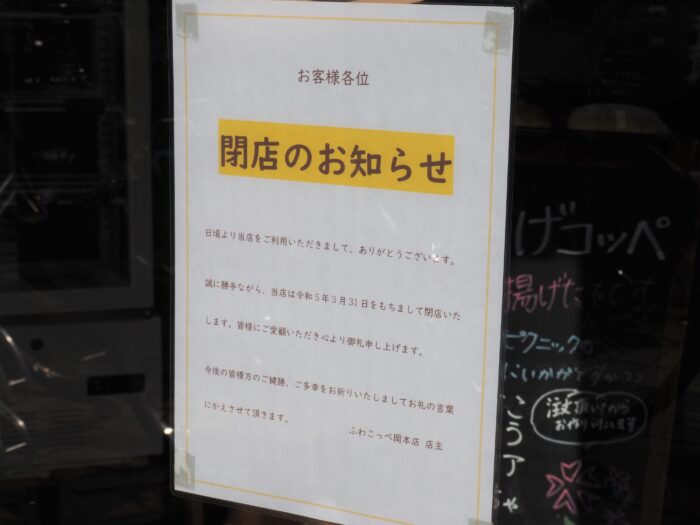 お客様各位
閉店のお知らせ
日頃より当店をご利用いただきまして、ありがとうございます。
誠に勝手ながら、当店は令和5年3月31日をもちまして閉店いた
します。皆様にご愛顧いただき心より御礼申し上げます。
今後の皆様方のご健勝、ご多幸をお祈りいたしましてお礼の言葉
にかえさせて頂きます。
ふわこっぺ岡本店 店主
げコッペ
揚げた
ピクニックの
にいかがですか??
注文頂いてから
お作りいたします